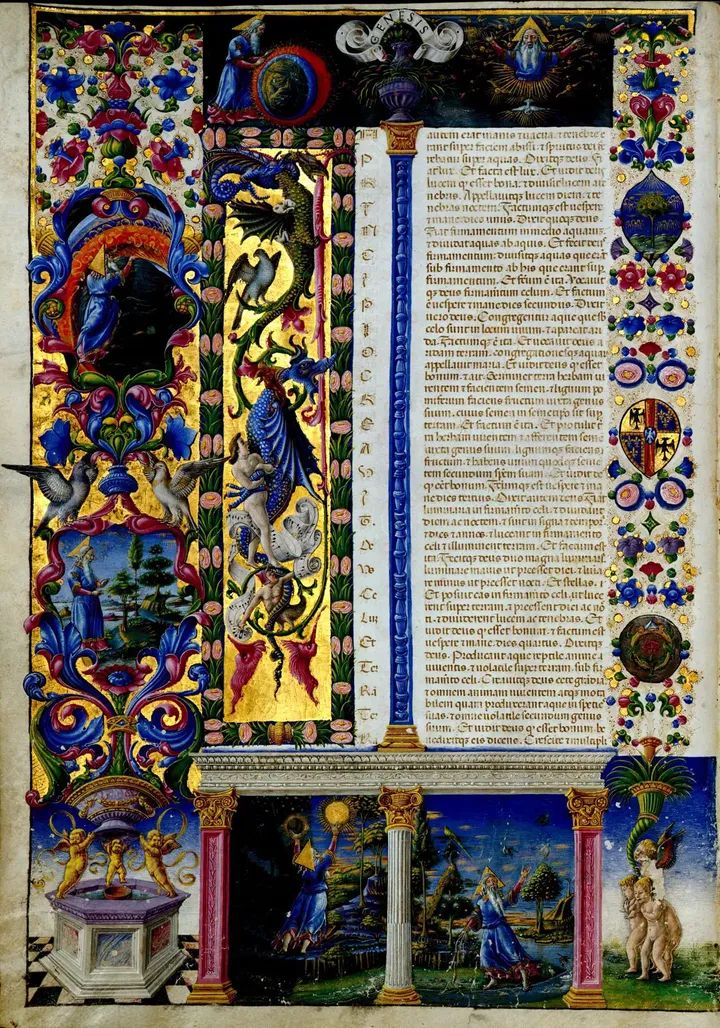 GENESIS
P
R
I
N
C
I
P
I
O
C
R
E
A
V
I
T
Ce
Lu
Et
Ter
Ra
autem erat inanis & uacua. & tenebre e
rant super faciem abissi. & spiritus dei fe
rebatur super aquas. Dixitq3 deus. Fi
at lux. Et facta est lux. Et uidit deus
lucem q esset bona: & diuisit lucem a te
nebris. Appellauitq3 lucem diem. & te
nebras noctem. Factumq3 est uespere
& mane dies unus. Dixit quoq3 deus.
Fiat firmamentum in medio aquarum:
& diuidat aquas ab aquis. Et fecit deus
firmamentum: diuisitq3 aquas que erant
sub firmamento ab his que erant sup
firmamentum. Et factum e ita. Vocauit
q3 deus firmamentum celum. Et factum
e uespere & mane dies secundus. Dixit
uero deus. Congregentur aque que sub
celo sunt in locum unum. & appareat ari
da. Factumq3 e ita. Et uocauit deus ari
dam terram. congregationesq3 aquarum
appellauit maria. Et uidit deus q esset
bonum. & ait. Germinet terra herbam ui
rentem & facientem semen. & lignum po
miferum faciens fructum iuxta genus
suum. cuius semen in semetipso sit sup
terram. Et factum e ita. Et protulit ter
ra herbam uirentem & afferentem semen
iuxta genus suum. lignumq3 faciens
fructum. & habens unumquodq3 semen
tem secundum speciem suam. Et uidit deus
q esset bonum. Factumq3 est uespere & ma
ne dies tertius. Dixit autem deus. Fiant
luminaria in firmamento celi. & diuidant
diem ac noctem. & sint in signa & tempora
& dies & annos. & luceant in firmamento
celi & illuminent terram. Et factum est ita
Fecitq3 deus duo magna luminaria.
luminare maius ut preesset diei. & lumi
nare minus ut preesset nocti. Et stellas.
Et posuit eas in firmamento celi. ut luce
rent super terram. & preessent diei ac no
cti. & diuiderent lucem ac tenebras. Et
uidit deus q esset bonum. & factum est
uespere & mane. dies quartus. Dixit
deus. Producant aque reptile anime ui
uentis. & uolatile super terram. sub fir
mamento celi. Creauitq3 deus cete grandia &
omnem animam uiuentem atq3 mota
bilem quam produxerant aque in species
suas. & omne uolatile secundum genus
suum. Et uidit deus q esset bonum. be
nedixitq3 eis dicens. Crescite & multipli